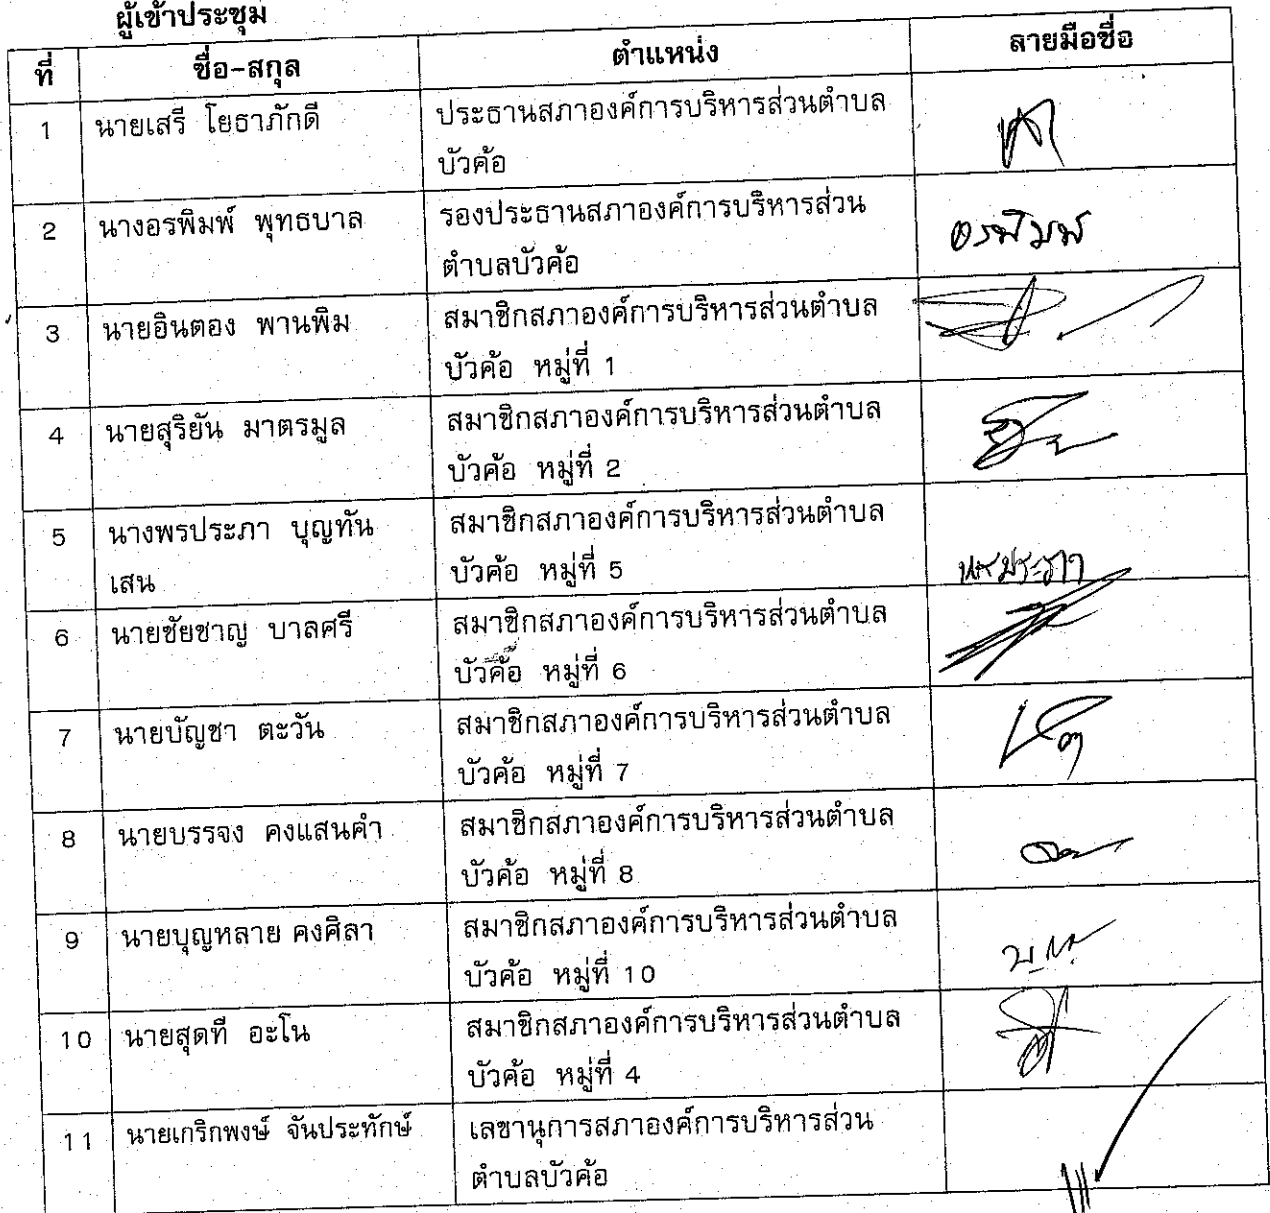 ผู้เข้าประชุม
ที่ ชื่อ-สกุล ตำแหน่ง ลายมือชื่อ
1 นายเสรี โยธาภักดี ประธานสภาองค์การบริหารส่วนตำบล
บัวค้อ
2 นางอรพิมพ์ พุทธบาล รองประธานสภาองค์การบริหารส่วน
ตำบลบัวค้อ อรพิมพ์
3 นายอินตอง พานพิม สมาชิกสภาองค์การบริหารส่วนตำบล
บัวค้อ หมู่ที่ 1
4 นายสุริยัน มาตรมูล สมาชิกสภาองค์การบริหารส่วนตำบล
บัวค้อ หมู่ที่ 2
5 นางพรประภา บุญทัน สมาชิกสภาองค์การบริหารส่วนตำบล
เสน บัวค้อ หมู่ที่ 5 พรประภา
6 นายชัยชาญ บาลศรี สมาชิกสภาองค์การบริหารส่วนตำบล
บัวค้อ หมู่ที่ 6
7 นายบัญชา ตะวัน สมาชิกสภาองค์การบริหารส่วนตำบล
บัวค้อ หมู่ที่ 7
8 นายบรรจง คงแสนคำ สมาชิกสภาองค์การบริหารส่วนตำบล
บัวค้อ หมู่ที่ 8
9 นายบุญหลาย คงศิลา สมาชิกสภาองค์การบริหารส่วนตำบล
บัวค้อ หมู่ที่ 10
10 นายสุดที อะโน สมาชิกสภาองค์การบริหารส่วนตำบล
บัวค้อ หมู่ที่ 4
11 นายเกริกพงษ์ จันประทักษ์ เลขานุการสภาองค์การบริหารส่วน
ตำบลบัวค้อ